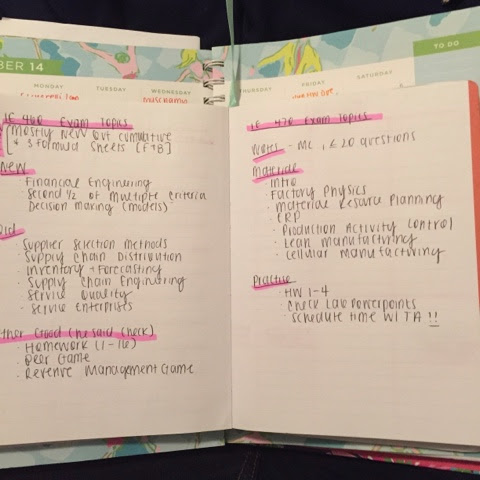 BER 14
MONDAY TUESDAY WEDNESDAY
IE 460 Exam Topics
[Mostly New but cumulative
* 3 formula sheets [F+B]
New
· Financial Engineering
· Second 1/2 of Multiple Criteria
Decision Making (models)
Old
· Supplier Selection Methods
· Supply Chain Distribution
· Inventory + Forecasting
· Supply Chain Engineering
· Service Quality
· Service Enterprises
ther Good (he said check)
· Homework (1-
· Beer Game
· Revenue Management Game
TO DO
THURSDAY FRIDAY SATURDAY
IE 470 Exam Topics
Notes - MC, ≤ 20 questions
Materials
· Intro
· Factory Physics
· Material Resource Planning
· ERP
· Production Activity Control
· Lean Manufacturing
· Cellular Manufacturing
Practice
· HW 1-4
· Check Lab Powerpoints
· Schedule time W/ TA !!